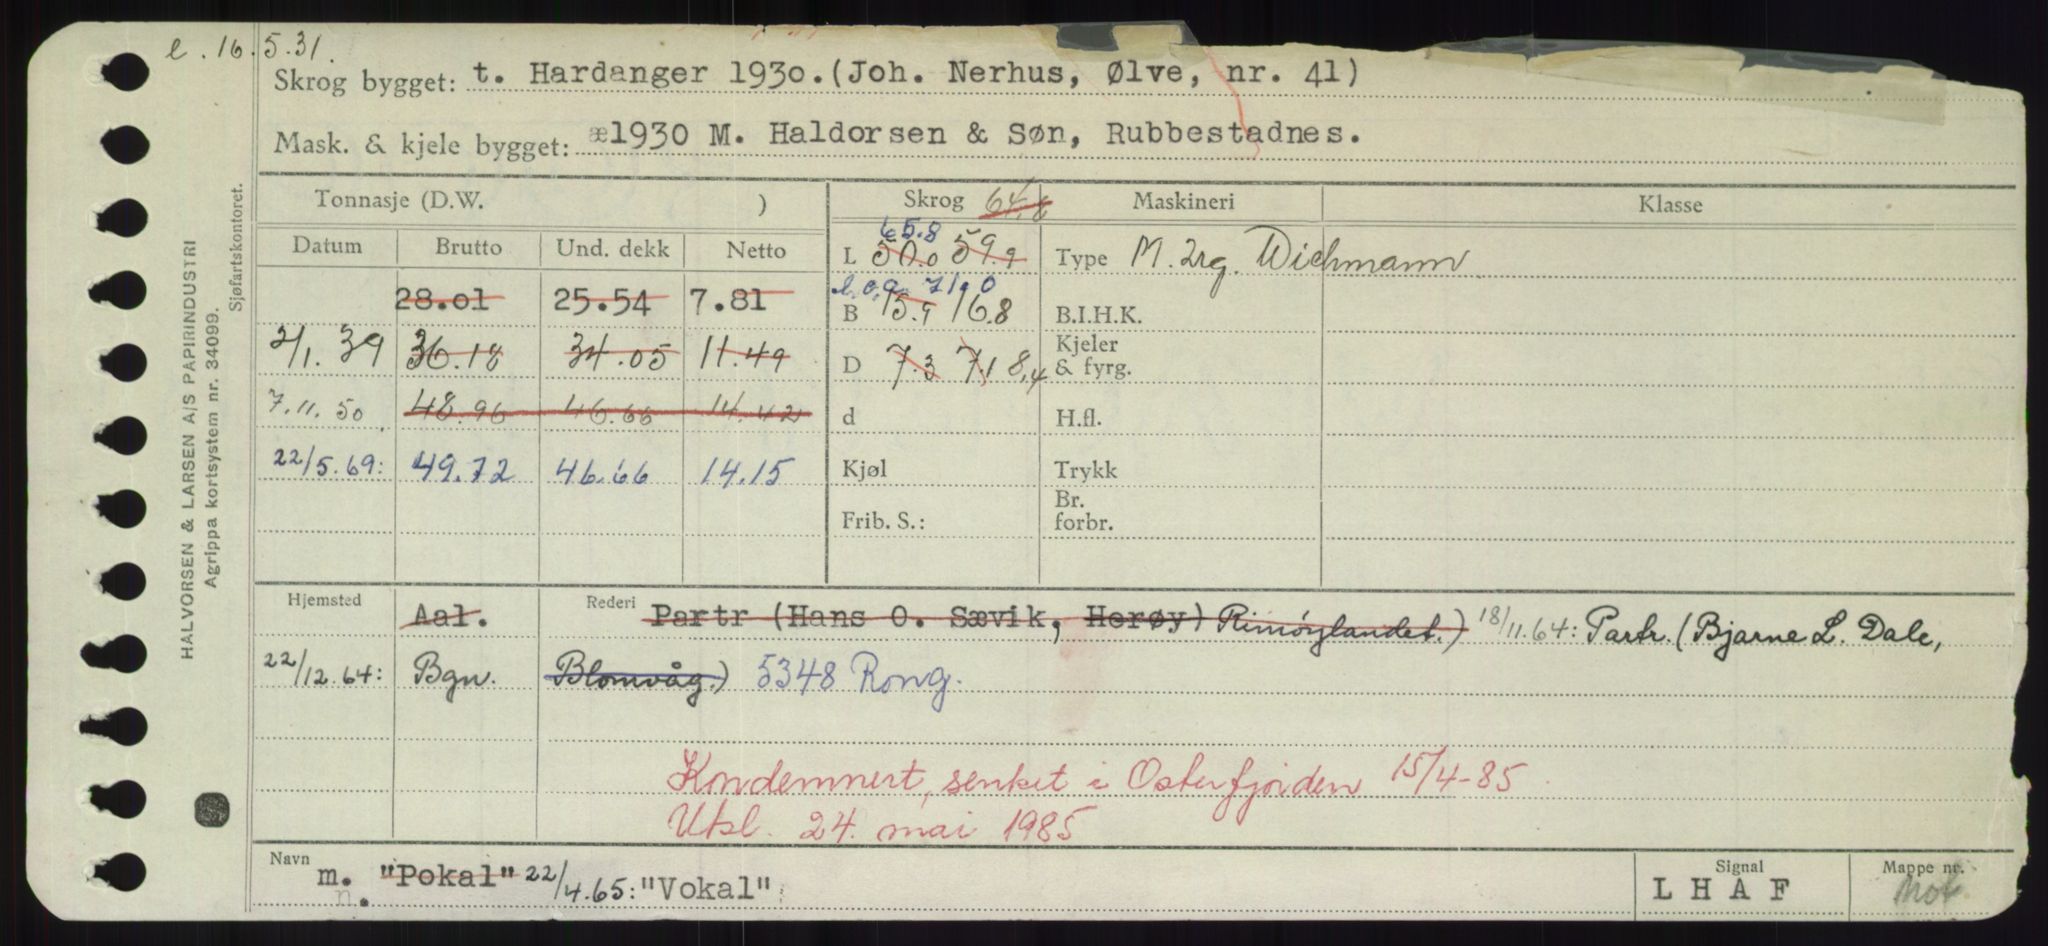 e. 16.5.31.
Skrog bygget: t. Hardanger 1930.(Joh. Nerhus, Ølve, nr. 41)
Mask. & kjele bygget: æ1930 M. Haldorsen & Søn, Rubbestadnes.
HALVORSEN & LARSEN A/S PAPIRINDUSTRI
Agrippa kortsystem nr. 34099.
Sjøfartskontoret.
Tonnasje (D.W. ) Skrog 64.8 Maskineri Klasse
Datum Brutto Und. dekk Netto
65.8
L 50.0 59.9 Type M. 2rg. Wichmann
28.01 25.54 7.81
l.o.a. 71.0
B 15.9 16.8 B.I.H.K.
2/1.39 36.18 34.05 11.49
D 7.3 7.1 8.4 Kjeler & fyrg.
7.11.50 48.96 46.66 14.42 d H.fl.
22/5.69: 49.72 46.66 14.15 Kjøl Trykk
Frib. S.: Br. forbr.
Hjemsted Aal. Rederi Partr (Hans O. Sævik, Herøy) Rimøylandet.) 18/11.64: Partr. (Bjarne L. Dale,
22/12.64: Bgn. Blomvåg.) 5348 Rong.
Kondemnert, senket i Osterfjorden 15/4-85
Utsl. 24. mai 1985
Navn m. "Pokal" 22/4.65: "Vokal" Signal LHAF Mappe nr. Mot.
n.